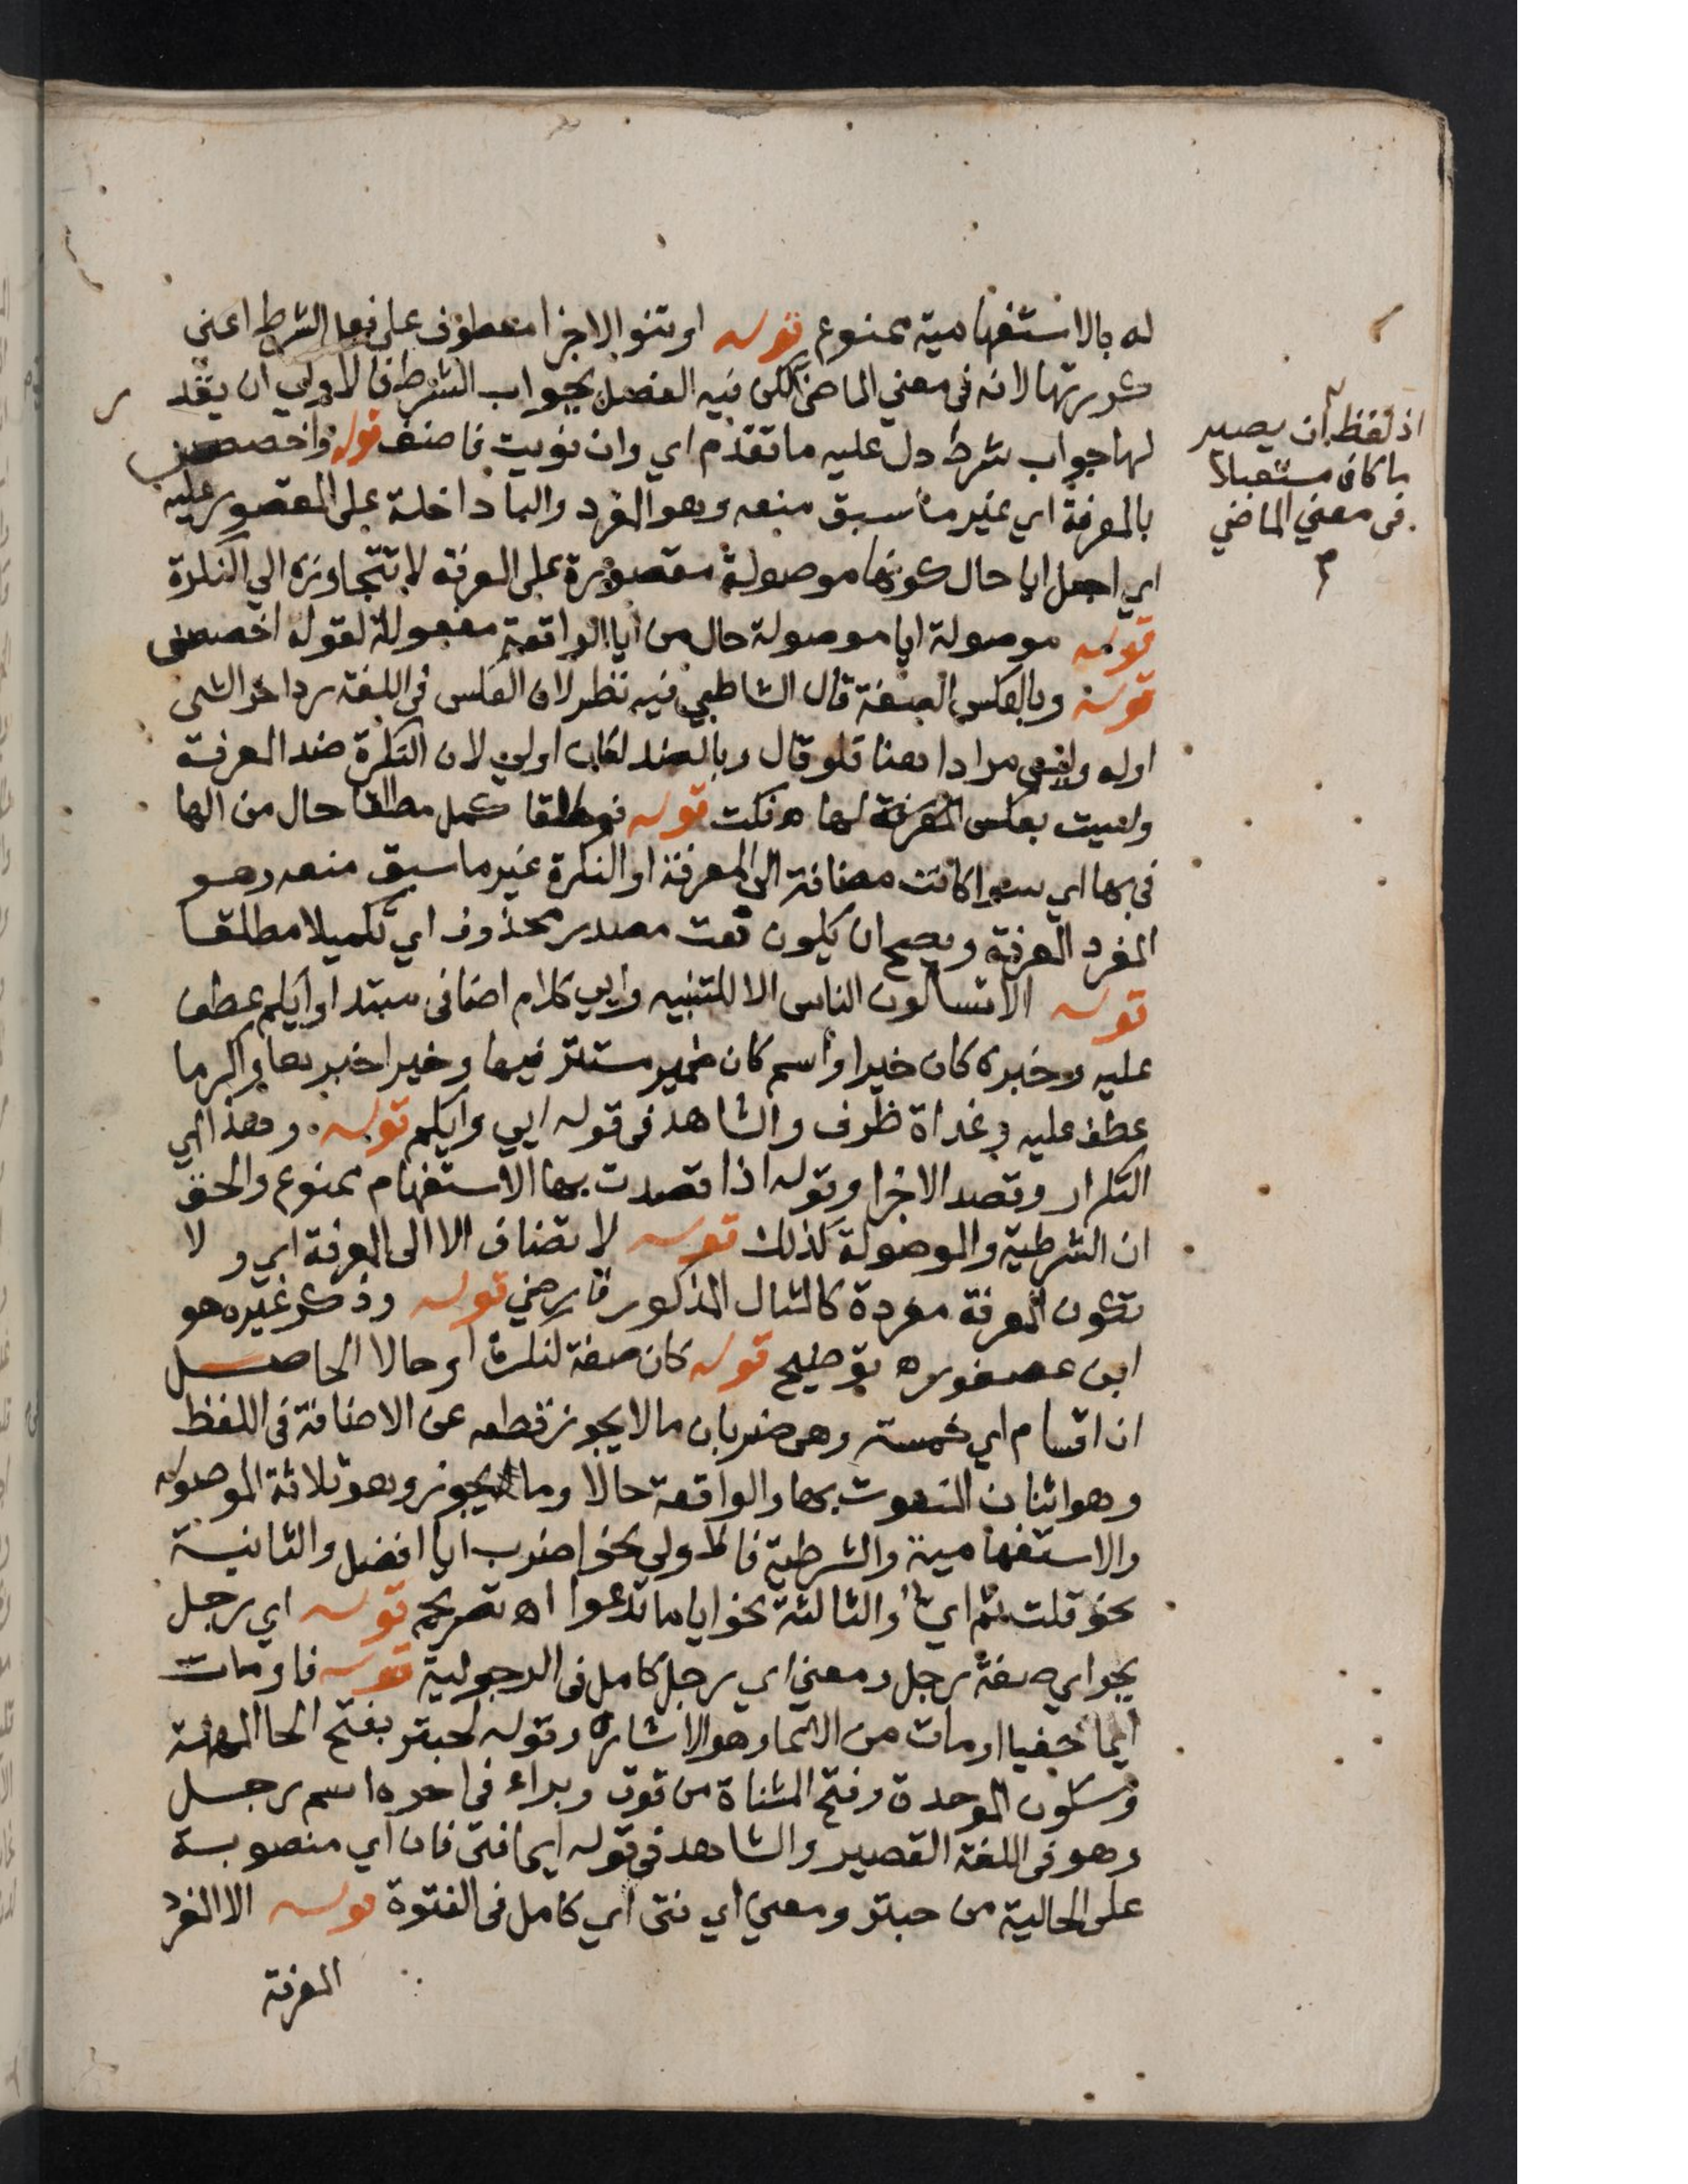 له بالاستفهامية ممنوع قوله او تنو الاجزا معطوف على فعل الشرط اعنى
كررتها لانه فى معني الماضى لكن فيه الفصل بجواب الشرط فالاولي ان يقد
لها جواب شرط دل عليه ما تقدم اي وان نويت فاضف قوله واخصصن
بالمعرفة اي غير ما سبق منعه وهو المفرد والبا داخلة على المقصور عليه
اي اجعل ايا حال كونها موصولة مقصورة على المعرفة لا تتجاوزه الي النكرة
قوله موصولة ايا موصولة حال من ايا الواقعة مفعولة لقوله اخصصن
قوله وبالعكس الصفة قال الشاطبي فيه نظر لان العكس فى اللغة رد اخر الشى
اوله وليس مرادا هنا فلو قال وبالضد لكان اولي لان النكرة ضد المعرفة
وليست بعكس المعرفة لها ه نكت قوله فمطلقا كمل مطلقا حال من الها
فى بها اي سوا كانت مضافة الى المعرفة او النكرة غير ما سبق منعه وهو
المفرد المعرفة ويصح ان يكون نعت مصدر محذوف اي تكميلا مطلقا
قوله الا تسالون الناس الا للتنبيه وايي كلام اضافى مبتدا وايكم عطف
عليه وخبره كان خيرا واسم كان ضمير مستتر فيها وخيرا خبرها واكرما
عطف عليه وغداة ظرف والشاهد فى قوله ايي وايكم قوله وهذا اي
التكرار وقصد الاجزا وقوله اذا قصدت بها الاستفهام ممنوع والحق
ان الشرطية والموصولة كذلك قوله لا تضاف الا الى المعرفة اي ولا
تكون المعرفة مفردة كالمثال المذكور فارضي قوله وذكر غيره هو
ابن عصفور ه توضيح قوله كان صفة لنكرة او حالا الحاصل
ان اقسام اي خمسة وهى ضربان ما لا يجوز قطعه عن الاضافة فى اللفظ
وهو اثنان المنعوت بها والواقعة حالا وما يجوز وهو ثلاثة الموصوله
والاستفهامية والشرطية فالاولي نحو اضرب ايا افضل والثانية
نحو قلت ثم اي والثالثة نحو ايا ما تدعوا اه تصريح قوله اي رجل
بجر اي صفة رجل ومعني اي رجل كامل فى الرجولية قوله فاومات
ايما خفيا اومات من الايما وهو الاشارة وقوله لحبتر بفتح الحا المهملة
وسكون الموحدة وفتح المثناة من فوق وبراء فى اخره اسم رجل
وهو فى اللغة القصير والشاهد فى قوله ايما فتى فان اي منصوبة
على الحالية من حبتر ومعني اي فتى اي كامل فى الفتوة قوله الا المفرد
المعرفة
اذ لفظ ان يصير
ما كان مستقبلا
فى معني الماضي